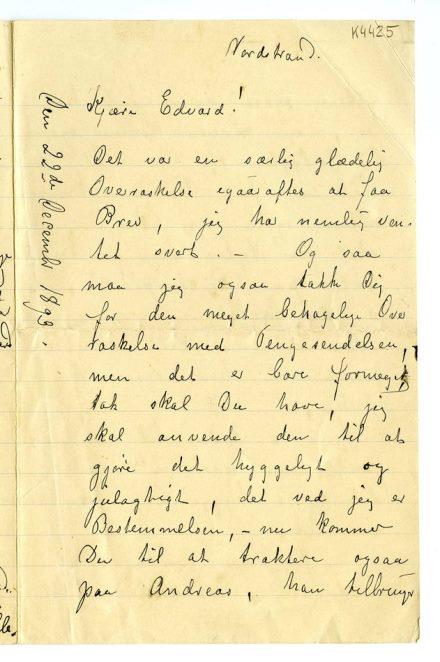 K4425
Nordstrand.
Den 22de December 1892.
Kjære Edvard!
Det var en særlig glædelig
Overraskelse igaaraftes at faa
Brev, jeg har nemlig ven-
tet svært. – Og saa
maa jeg ogsaa takke Dig
for den meget behagelige Over
raskelse med Pengesendelsen,
men det er bare formeget,
tak skal Du have, jeg
skal anvende den til at
gjøre det hyggeligt og
julagtigt, det ved jeg er
Bestemmelsen, – nu kommer
Du til at traktere ogsaa
paa Andreas, han tilbringer